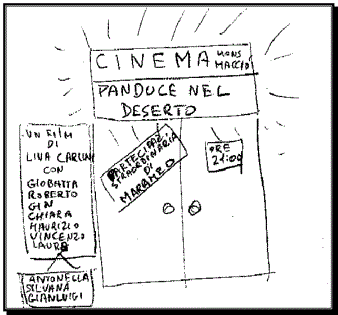 CINEMA MONS
MACCIÒ
PANDUCE NEL
DESERTO
UN FILM
DI
LIVA CARLINI
CON
GIOBATTA
ROBERTO
GIN
CHIARA
MAURIZIO
VINCENZO
LAURA
ANTONELLA
SILVANA
GIANLUIGI
PARTECIPAZ
STRAORDINARIA
DI
ORE
21:00